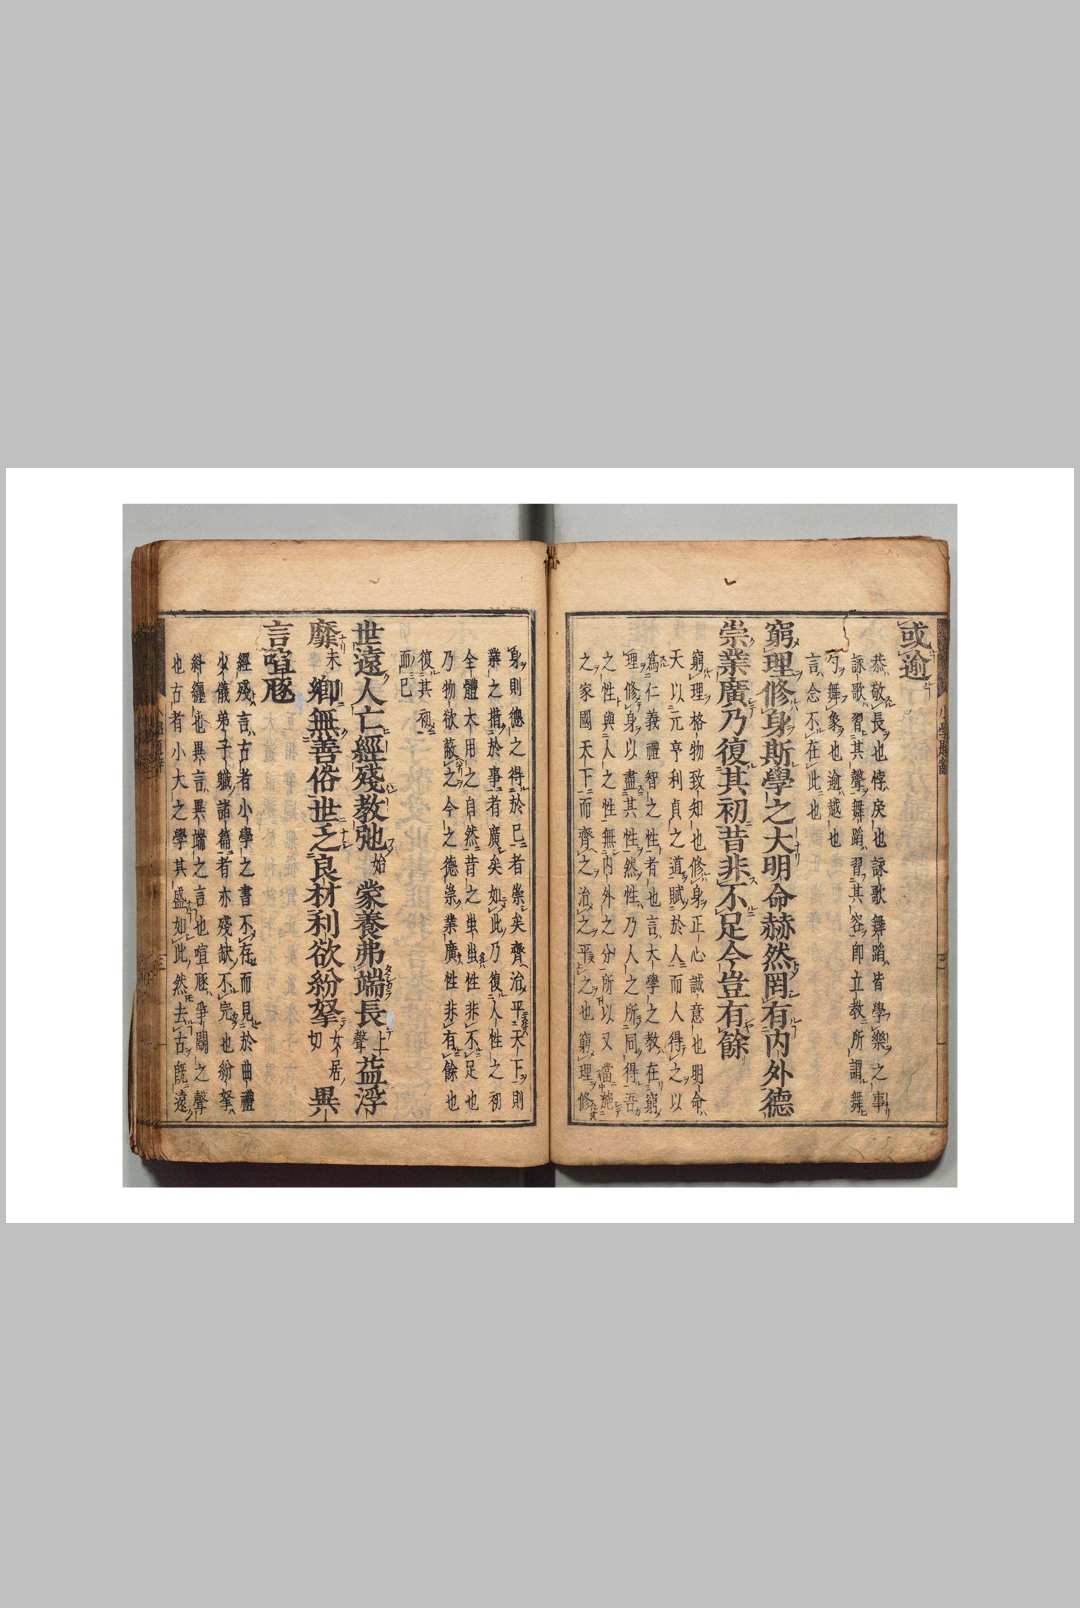 或逾
恭敬長也悖戾也詠歌舞蹈皆學樂之事
詠歌習其聲舞蹈習其容卽立教所謂舞
勺舞象也逾越也
言念不在此也
窮理修身斯學之大明命赫然罔有内外德
崇業廣乃復其初昔非不足今豈有餘
窮理格物致知也修身正心誠意也明命
天以元亨利貞之道賦於人而人得之以
爲仁義禮智之性者也言大學之教在窮
理修身以盡其性然性乃人之所同得吾
之性與人之性無内外之分所以又當施
之家國天下而齊之治之平之也窮理修
身則德之得於己者崇矣齊治平天下則
業之措於事者廣矣如此乃復人性之初
全體大用之自然昔之蚩蚩性非不足也
乃物欲蔽之今之德崇業廣性非有餘也
復其初
而已
世遠人亡經殘教弛始蒙養弗端長上聲益浮
靡未鄉無善俗世乏良材利欲紛拏女居切異
言喧豗
經殘言古者小學之書不存而見於曲禮
少儀弟子職諸篇者亦殘缺不完也紛拏
糾纏也異言異端之言也喧豗爭鬭之聲
也古者小大之學其盛如此然去古旣遠